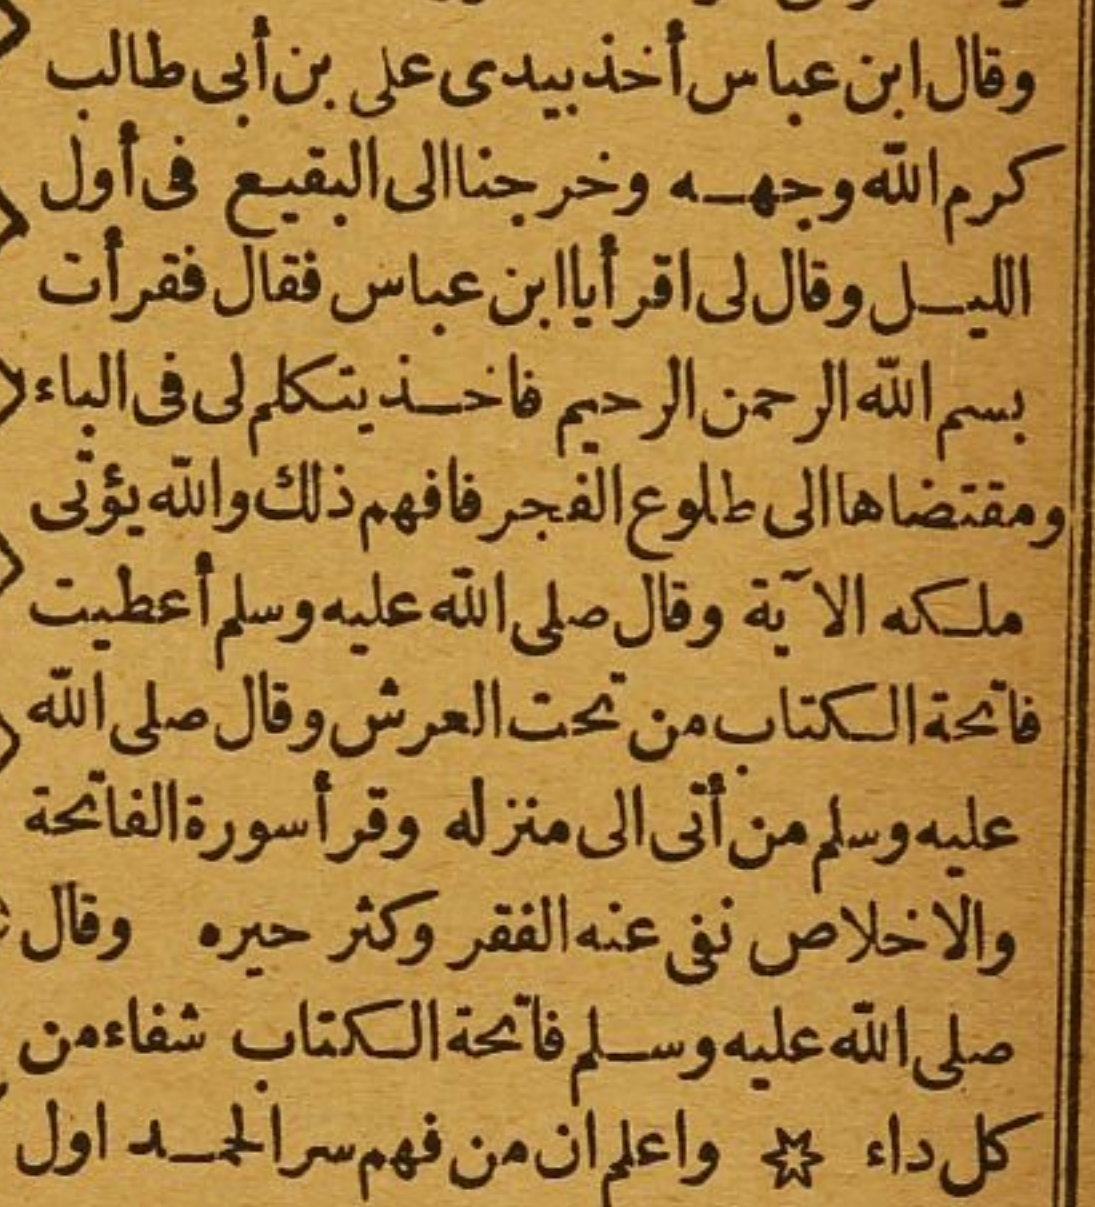 وقال ابن عباس أخذ بيدى على بن أبى طالب
كرم الله وجهه وخرجنا الى البقيع فى أول
الليل وقال لى اقرأ يا ابن عباس فقال فقرأت
بسم الله الرحمن الرحيم فاخذ يتكلم لى فى الباء
ومقتضاها الى طلوع الفجر فافهم ذلك والله يؤتى
ملكه الآية وقال صلى الله عليه وسلم أعطيت
فاتحة الكتاب من تحت العرش وقال صلى الله
عليه وسلم من أتى الى منزله وقرأ سورة الفاتحة
والاخلاص نفى عنه الفقر وكثر خيره وقال
صلى الله عليه وسلم فاتحة الكتاب شفاء من
كل داء واعلم ان من فهم سر الحمد اول